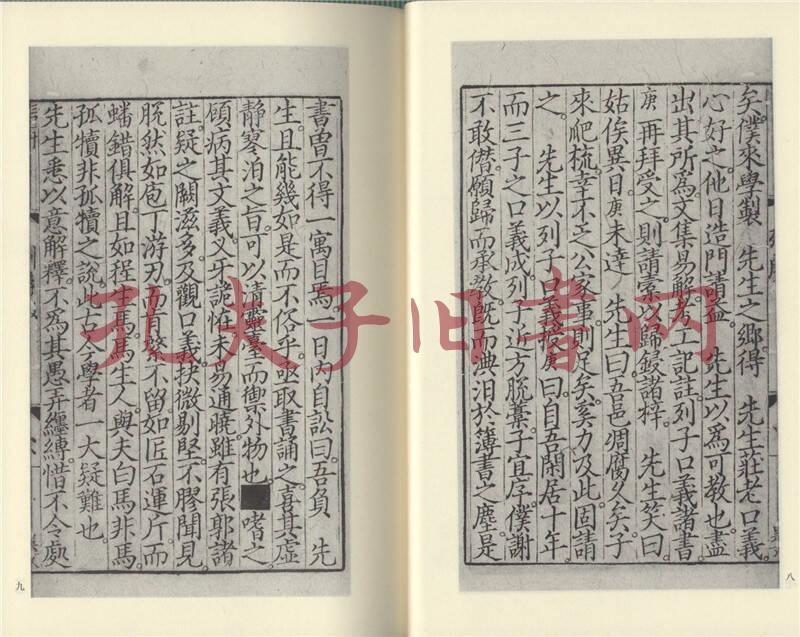 矣僕來學製 先生之鄉得 先生莊老口義
心好之他日造門請益 先生以爲可教也盡
出其所爲文集易解考工記註列子口義諸書
庚再拜受之則請索以歸鋟諸梓 先生笑曰
姑俟異日庚未達 先生曰吾邑凋腐久矣子
來爬梳幸不乏公家事則足矣奚力及此固請
之 先生以列子口義授庚曰自吾閑居十年
而三子之口義成列子近方脫藁子宜序僕謝
不敢僭願歸而承教既而淟汨於簿書之塵是
八
書曾不得一寓目焉一日內自訟曰吾負 先
生且能幾如是而不俗乎亟取書誦之喜其虛
靜寥泊之旨可以清靈臺而禦外物也 嗜之
病其文義乂牙詭恠未易通曉雖有張郭諸
註疑之闕滋多及觀口義抉微剔堅不膠聞見
脫然如庖丁游刃而肯綮不留如匠石運斤而
蟠錯俱解且如程生馬馬生人與夫白馬非馬
孤犢非孤犢之說此古今學者一大疑難也
先生悉以意解釋不爲其愚弄纏縛惜不令處
九
孔夫子旧书网